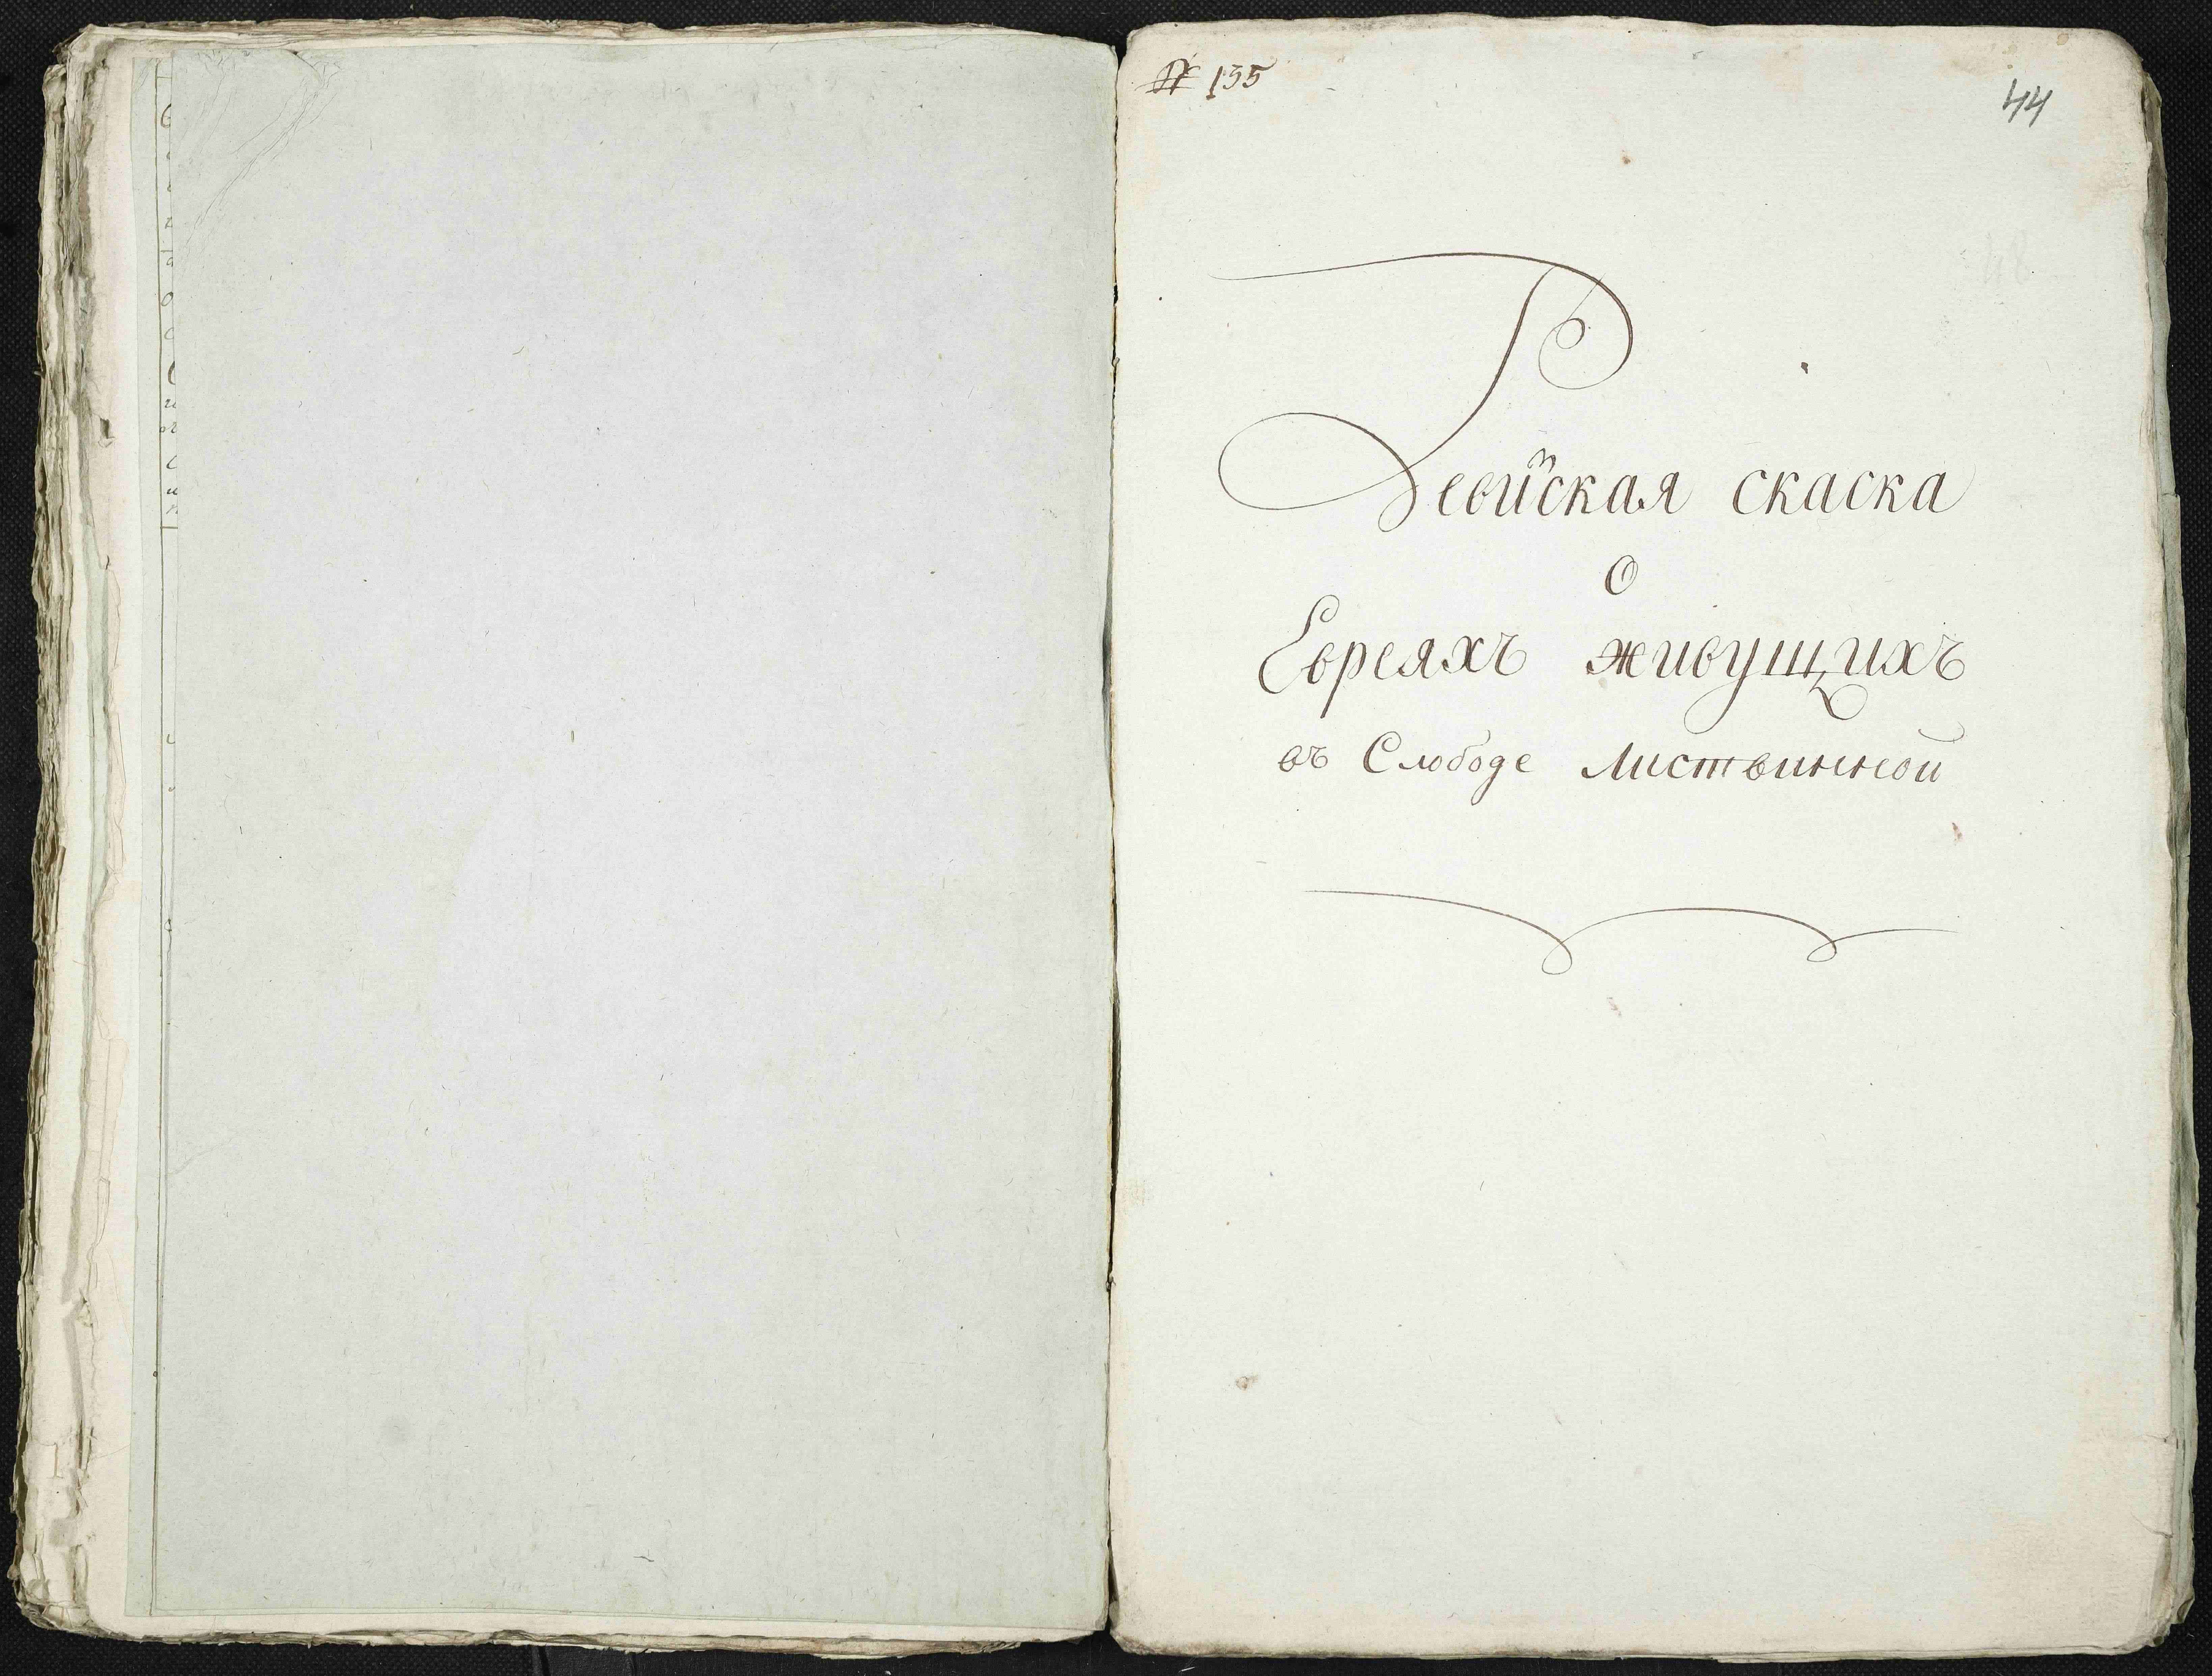 № 155
44
48
Ревийская скаска
о
Евреяхъ живущихъ
въ Слободе Листвинной